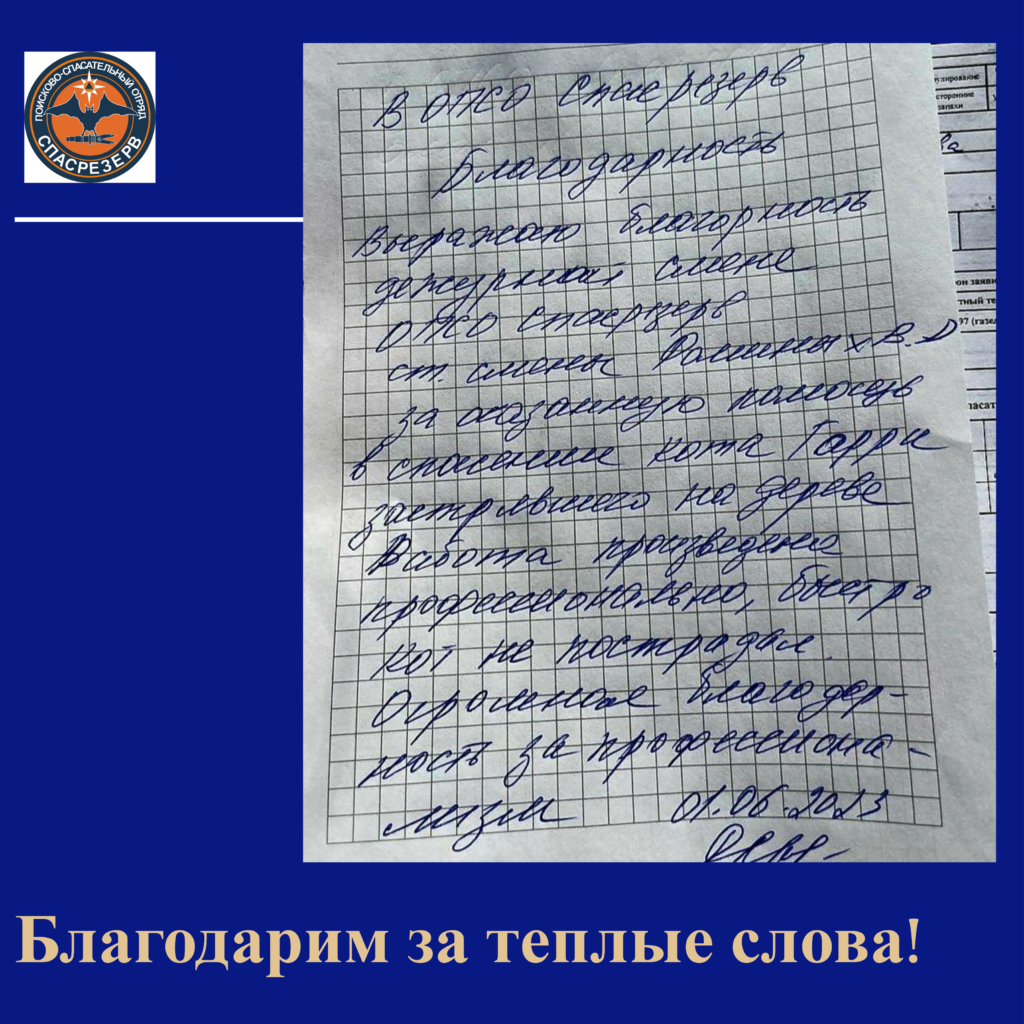 ПОИСКОВО-СПАСАТЕЛЬНЫЙ ОТРЯД
СПАСРЕЗЕРВ
В ОПСО Спасрезерв
Благодарность
Выражаю благорность
дежурной смене
ОПСО Спасрзерв
ст. смены В.Д
за оказанную помощь
в спасении кота Гарри
застрявшего на дереве
Работа произведена
профессионально, быстро
кот не пострадал.
Огромная благодар-
ность за профессиона-
лизм 01.06.2023
сторонние
запахи
Благодарим за теплые слова!